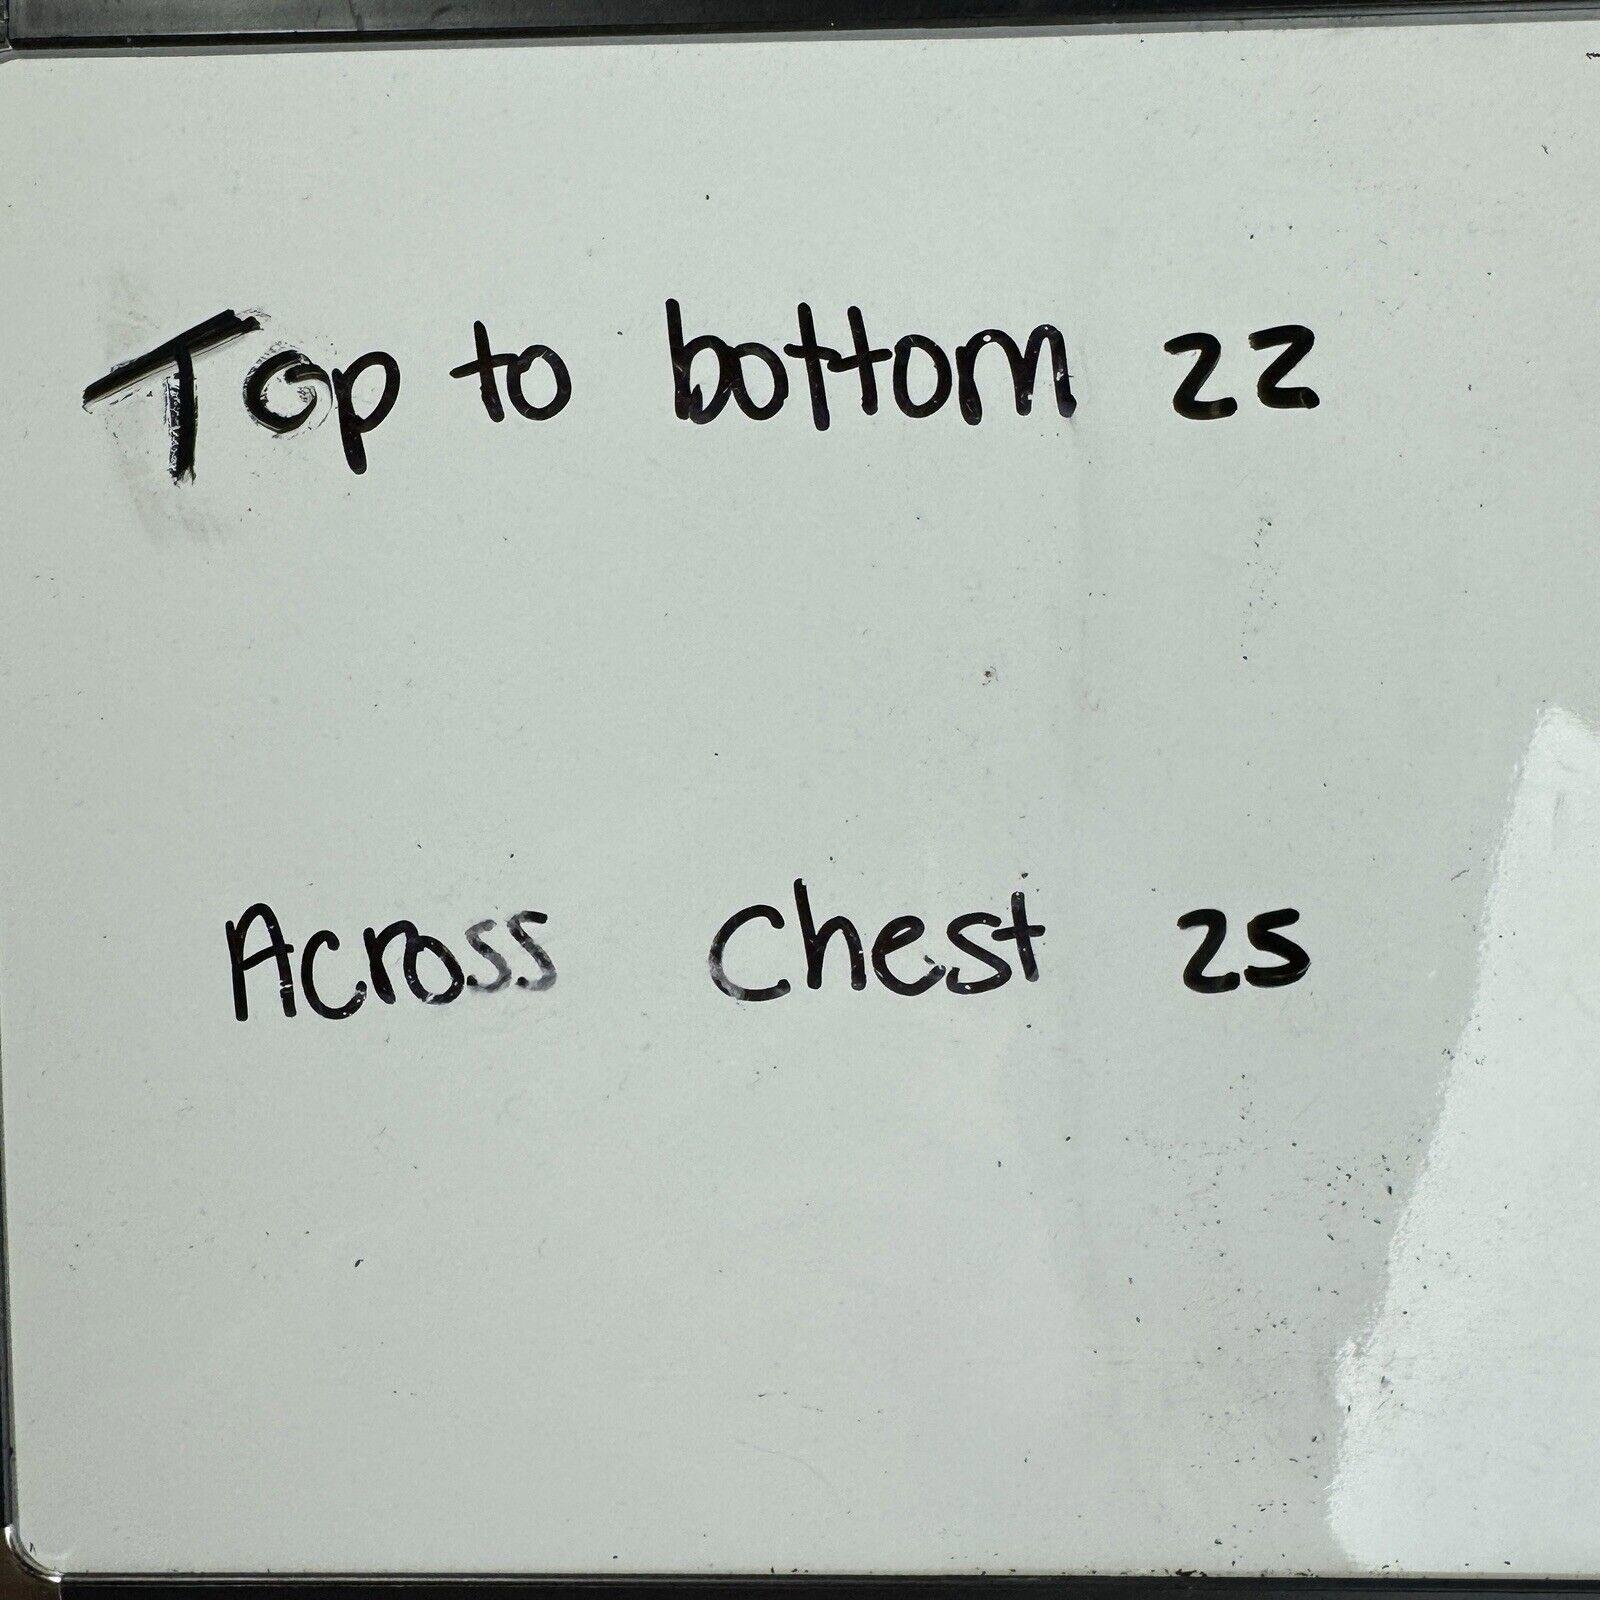 Top to bottom 22
Across Chest 25